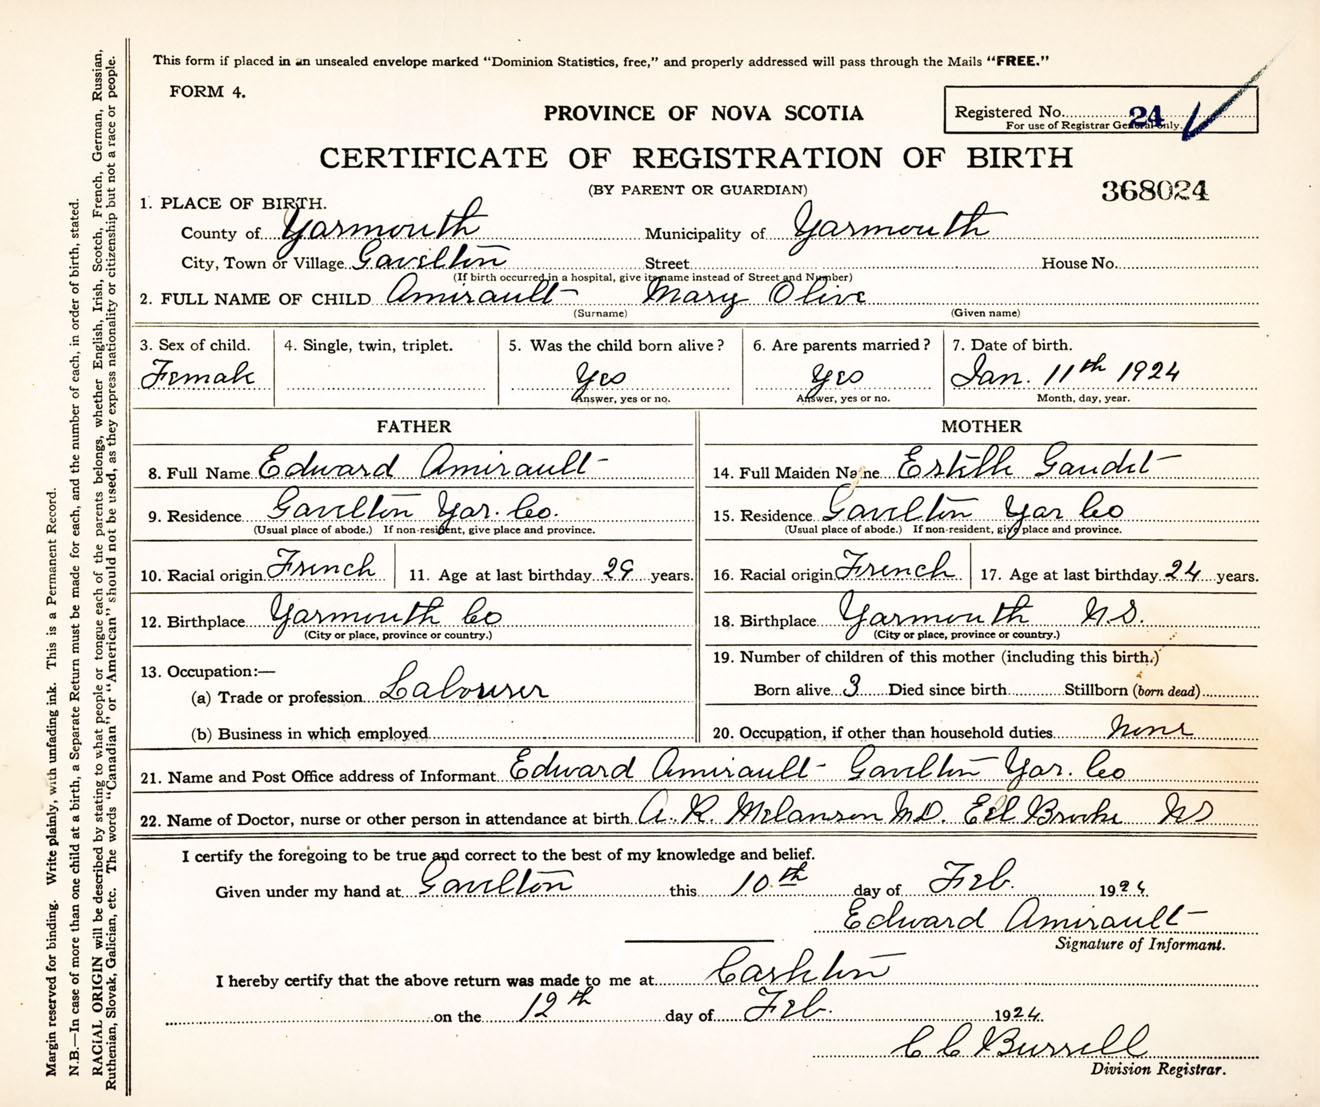 This form if placed in an unsealed envelope marked "Dominion Statistics, free," and properly addressed will pass through the Mails "FREE."
FORM 4.
PROVINCE OF NOVA SCOTIA
Registered No. 24
For use of Registrar General only.
CERTIFICATE OF REGISTRATION OF BIRTH
(BY PARENT OR GUARDIAN)
368024
1. PLACE OF BIRTH.
County of Yarmouth Municipality of Yarmouth
City, Town or Village Gavelton Street House No.
(If birth occurred in a hospital, give its name instead of Street and Number)
2. FULL NAME OF CHILD Amirault Mary Olive
(Surname) (Given name)
3. Sex of child. 4. Single, twin, triplet. 5. Was the child born alive? 6. Are parents married? 7. Date of birth.
Female Yes Yes Jan. 11th 1924
Answer, yes or no. Answer, yes or no. Month, day, year.
FATHER MOTHER
8. Full Name Edward Amirault 14. Full Maiden Name Estelle Gaudet
9. Residence Gavelton Yar. Co. 15. Residence Gavelton Yar Co
(Usual place of abode.) If non-resident, give place and province. (Usual place of abode.) If non-resident, give place and province.
10. Racial origin French 11. Age at last birthday 29 years. 16. Racial origin French 17. Age at last birthday 24 years.
12. Birthplace Yarmouth Co 18. Birthplace Yarmouth N.S.
(City or place, province or country.) (City or place, province or country.)
19. Number of children of this mother (including this birth.)
13. Occupation:—
(a) Trade or profession Labourer Born alive 3 Died since birth Stillborn (born dead)
(b) Business in which employed 20. Occupation, if other than household duties None
21. Name and Post Office address of Informant Edward Amirault Gavelton Yar. Co
22. Name of Doctor, nurse or other person in attendance at birth A. R. Melanson M.D. Eel Brooke NS
I certify the foregoing to be true and correct to the best of my knowledge and belief.
Given under my hand at Gavelton this 10th day of Feb. 1924
Edward Amirault
Signature of Informant.
I hereby certify that the above return was made to me at Carleton
on the 12th day of Feb. 1924.
C C Burrell
Division Registrar.
Margin reserved for binding. Write plainly, with unfading ink. This is a Permanent Record.
N.B.—In case of more than one child at a birth, a Separate Return must be made for each, and the number of each, in order of birth, stated.
RACIAL ORIGIN will be described by stating to what people or tongue each of the parents belongs, whether English, Irish, Scotch, French, German, Russian,
Ruthenian, Slovak, Galician, etc. The words "Canadian" or "American" should not be used, as they express nationality or citizenship but not a race or people.